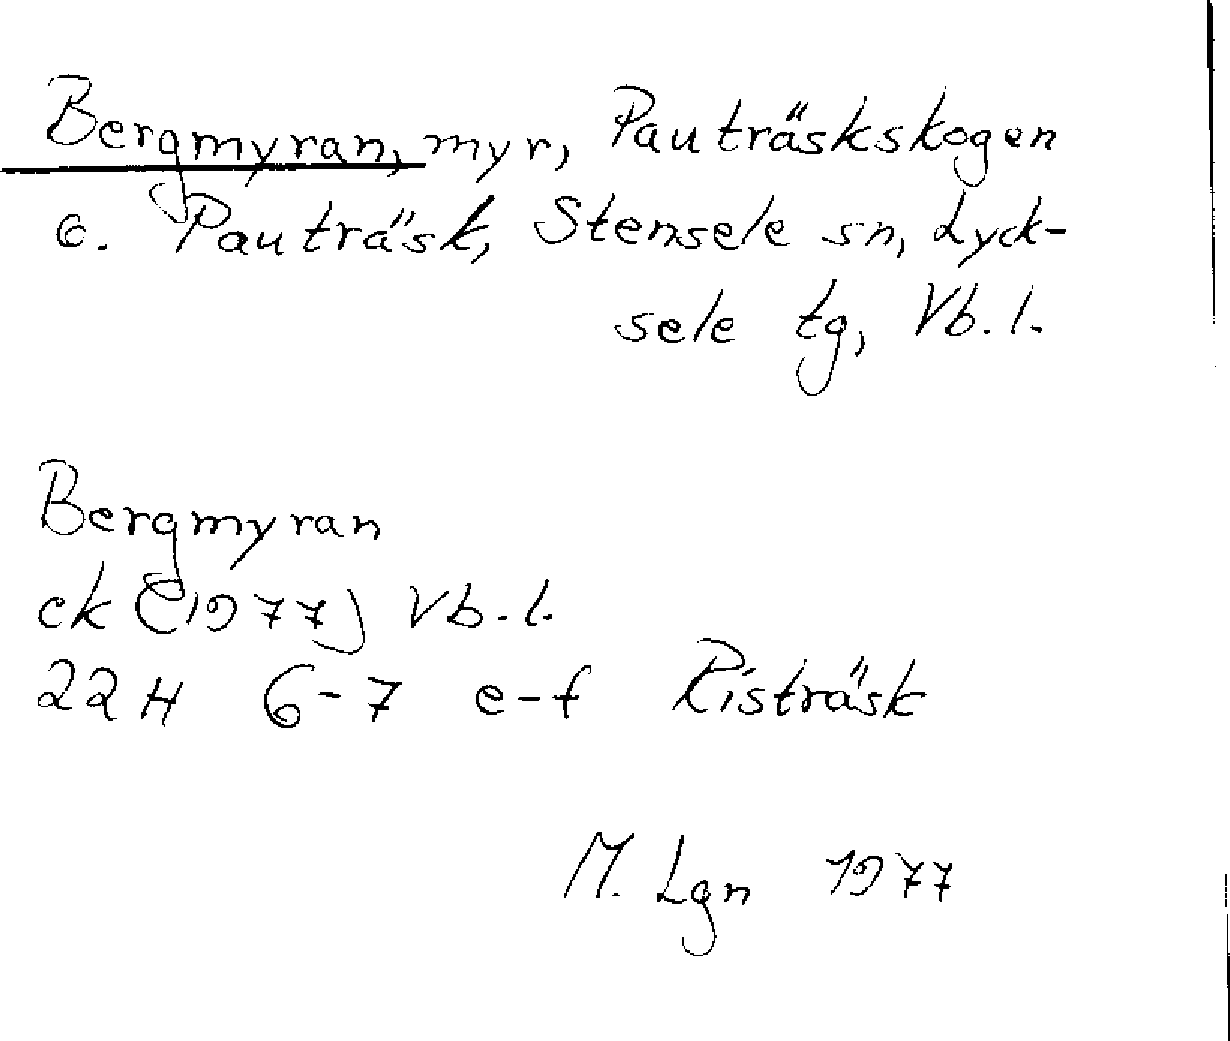 Bergmyran, myr, Pauträskskogen
o. Pauträsk, Stensele sn, Lyck-
sele tg, Vb. l.
Bergmyran
ek (1977) Vb. l.
22H 6-7 e-f Risträsk
M. Lgn 1977